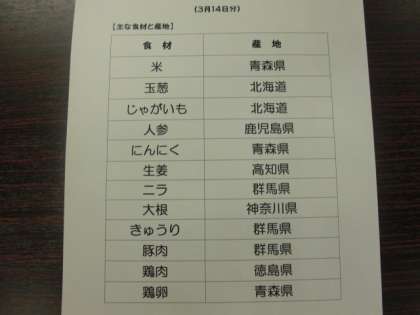 (3月14日分)
【主な食材と産地】
食 材 産 地
米 青森県
玉葱 北海道
じゃがいも 北海道
人参 鹿児島県
にんにく 青森県
生姜 高知県
ニラ 群馬県
大根 神奈川県
きゅうり 群馬県
豚肉 群馬県
鶏肉 徳島県
鶏卵 青森県